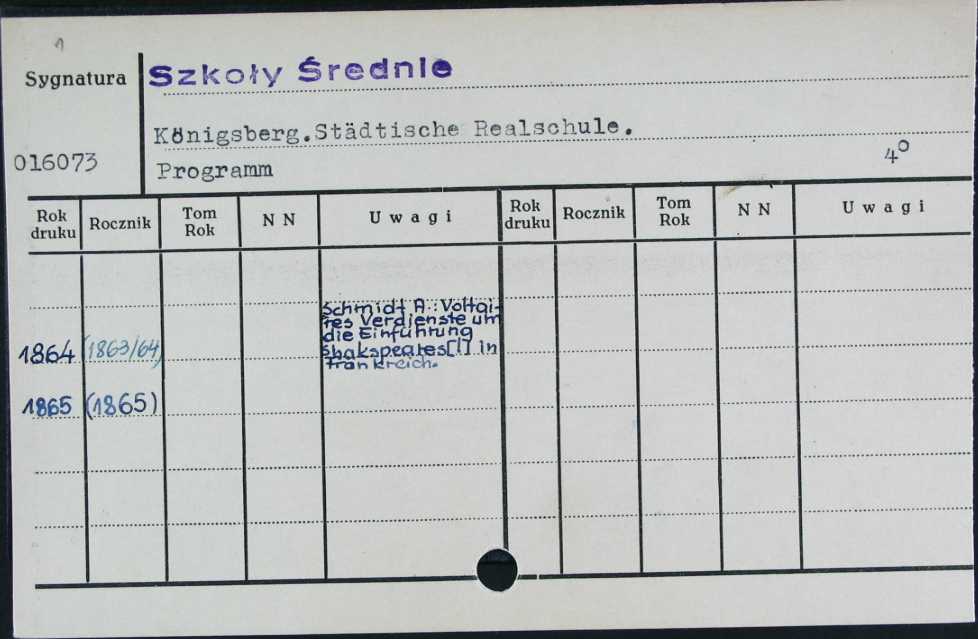 1
Sygnatura
Szkoły Średnie
016073
Königsberg.Städtische Realschule.
Programm
4°
Rok druku Rocznik Tom Rok N N Uwagi Rok druku Rocznik Tom Rok N N Uwagi
Schmidt A.: Voltai-
res Verdienste um
die Einführung
1864 (1863/64) Shakspeares[!] in
Frankreich.
1865 (1865)